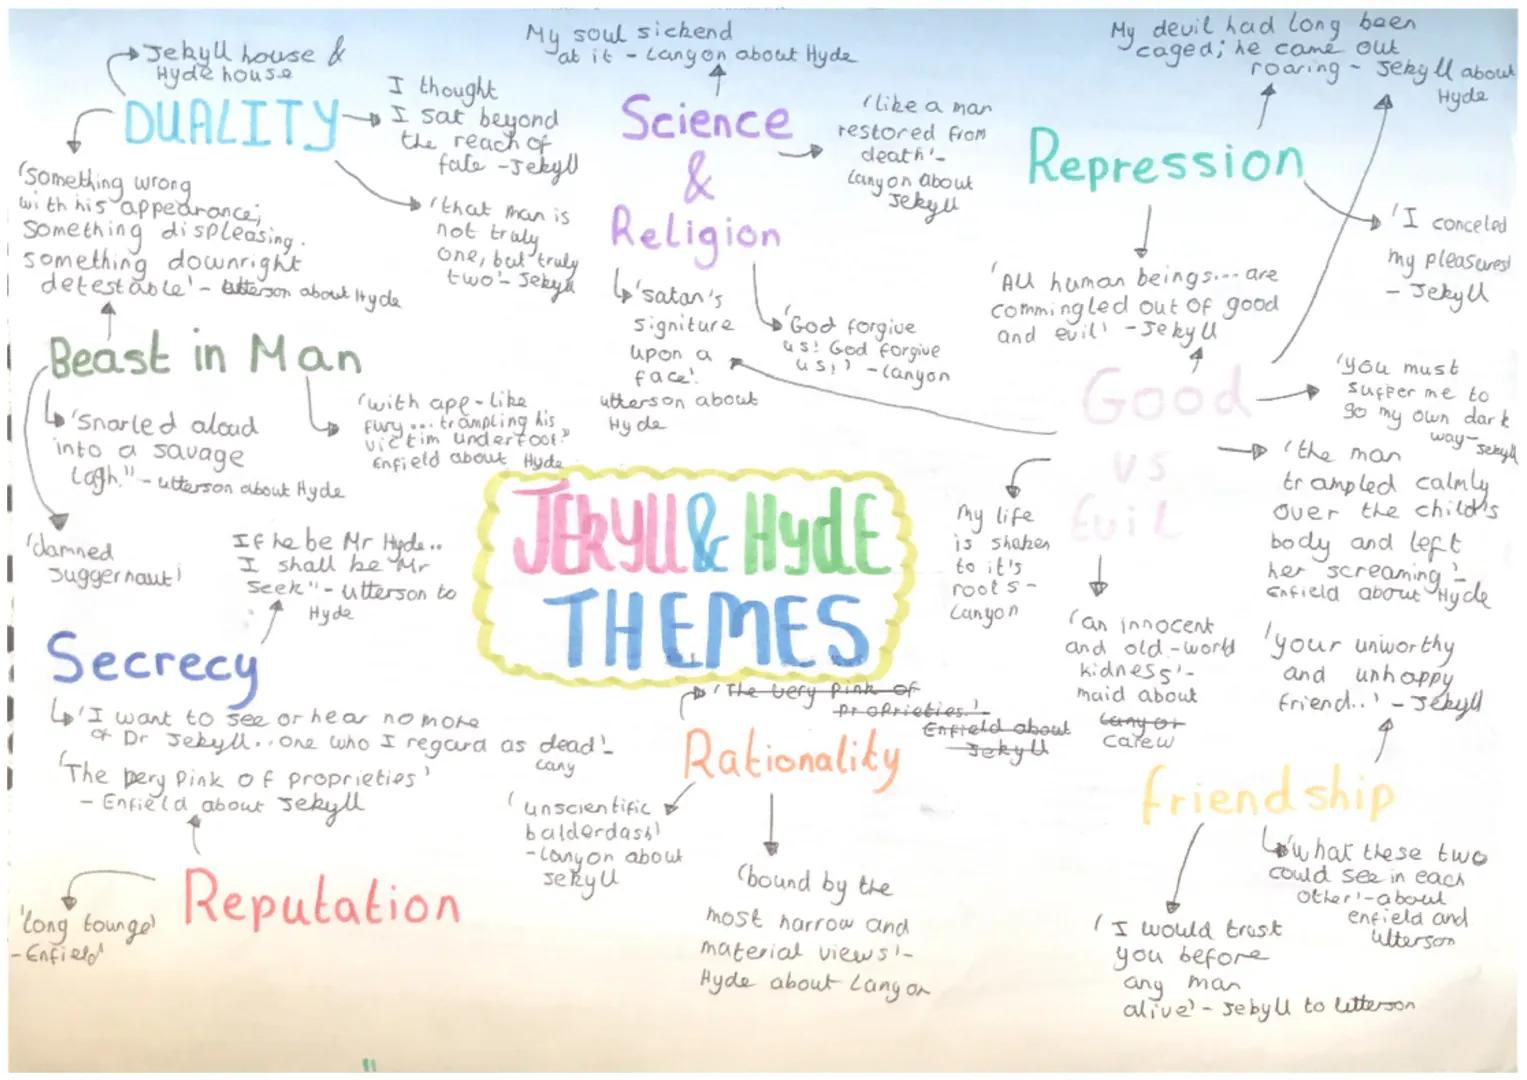 Jekyll house &
Hyde house
DUALITY
I thought
I sat beyond
the reach of
fate - Jekyll
'that man is
not truly
one, but truly
two' - Jekyll
'something wrong
with his appearance;
something displeasing.
something downright
detestable' - utterson about Hyde
My soul sickend
at it - Lanyon about Hyde
Science
&
Religion
'like a man
restored from
death' -
Lanyon about
Jekyll
'satan's
signiture
upon a
face'
utterson about
Hyde
'God forgive
us! God forgive
us!' - Lanyon
My devil had long been
caged; he came out
roaring - Jekyll about
Hyde
Repression
'I conceled
my pleasures'
- Jekyll
'All human beings... are
commingled out of good
and evil' - Jekyll
Beast in Man
'Snarled aloud
into a savage
lagh." - utterson about Hyde
'with ape-like
fury ... trampling his
victim underfoot."
Enfield about Hyde
'damned
Juggernaut'
Good
vs
Evil
'you must
suffer me to
go my own dark
way - Jekyll
'the man
trampled calmly
over the child's
body and left
her screaming' -
Enfield about Hyde
My life
is shaken
to it's
roots -
Lanyon
'an innocent
and old-world
kidness' -
maid about
Lanyon
Carew
JEKYLL & HydE
THEMES
If he be Mr Hyde..
I shall be Mr
Seek" - utterson to
Hyde
Secrecy
'I want to see or hear no more
of Dr Jekyll.. one who I regard as dead' -
Lany
'The very pink of proprieties'
- Enfield about Jekyll
Reputation
'long tounge'
- Enfield
'The very pink of
proprieties.'
Enfield about
Jekyll
Rationality
'unscientific
balderdash'
- Lanyon about
Jekyll
'bound by the
most narrow and
material views' -
Hyde about Lanyon
'your unworthy
and unhappy
friend..' - Jekyll
friendship
'what these two
could see in each
other' - about
enfield and
utterson
'I would trust
you before
any man
alive' - Jekyll to utterson